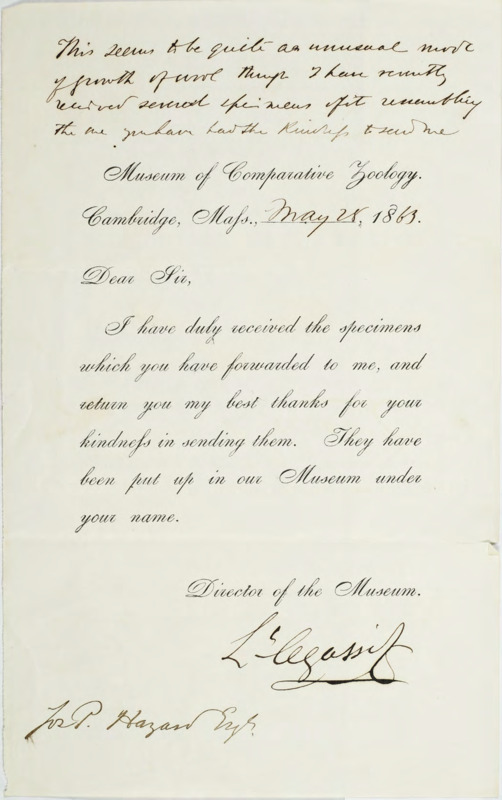 This seems to be quite an unusual mode
of growth of wool though I have recently
received several specimens of it resembling
the one you have had the kindneſs to send me
Museum of Comparative Zoology.
Cambridge, Maſs., May 28, 1863.
Dear Sir,
I have duly received the specimens
which you have forwarded to me, and
return you my best thanks for your
kindneſs in sending them. They have
been put up in our Museum under
your name.
Director of the Museum.
Ls Agassiz
Jos P. Hazard Esqr.